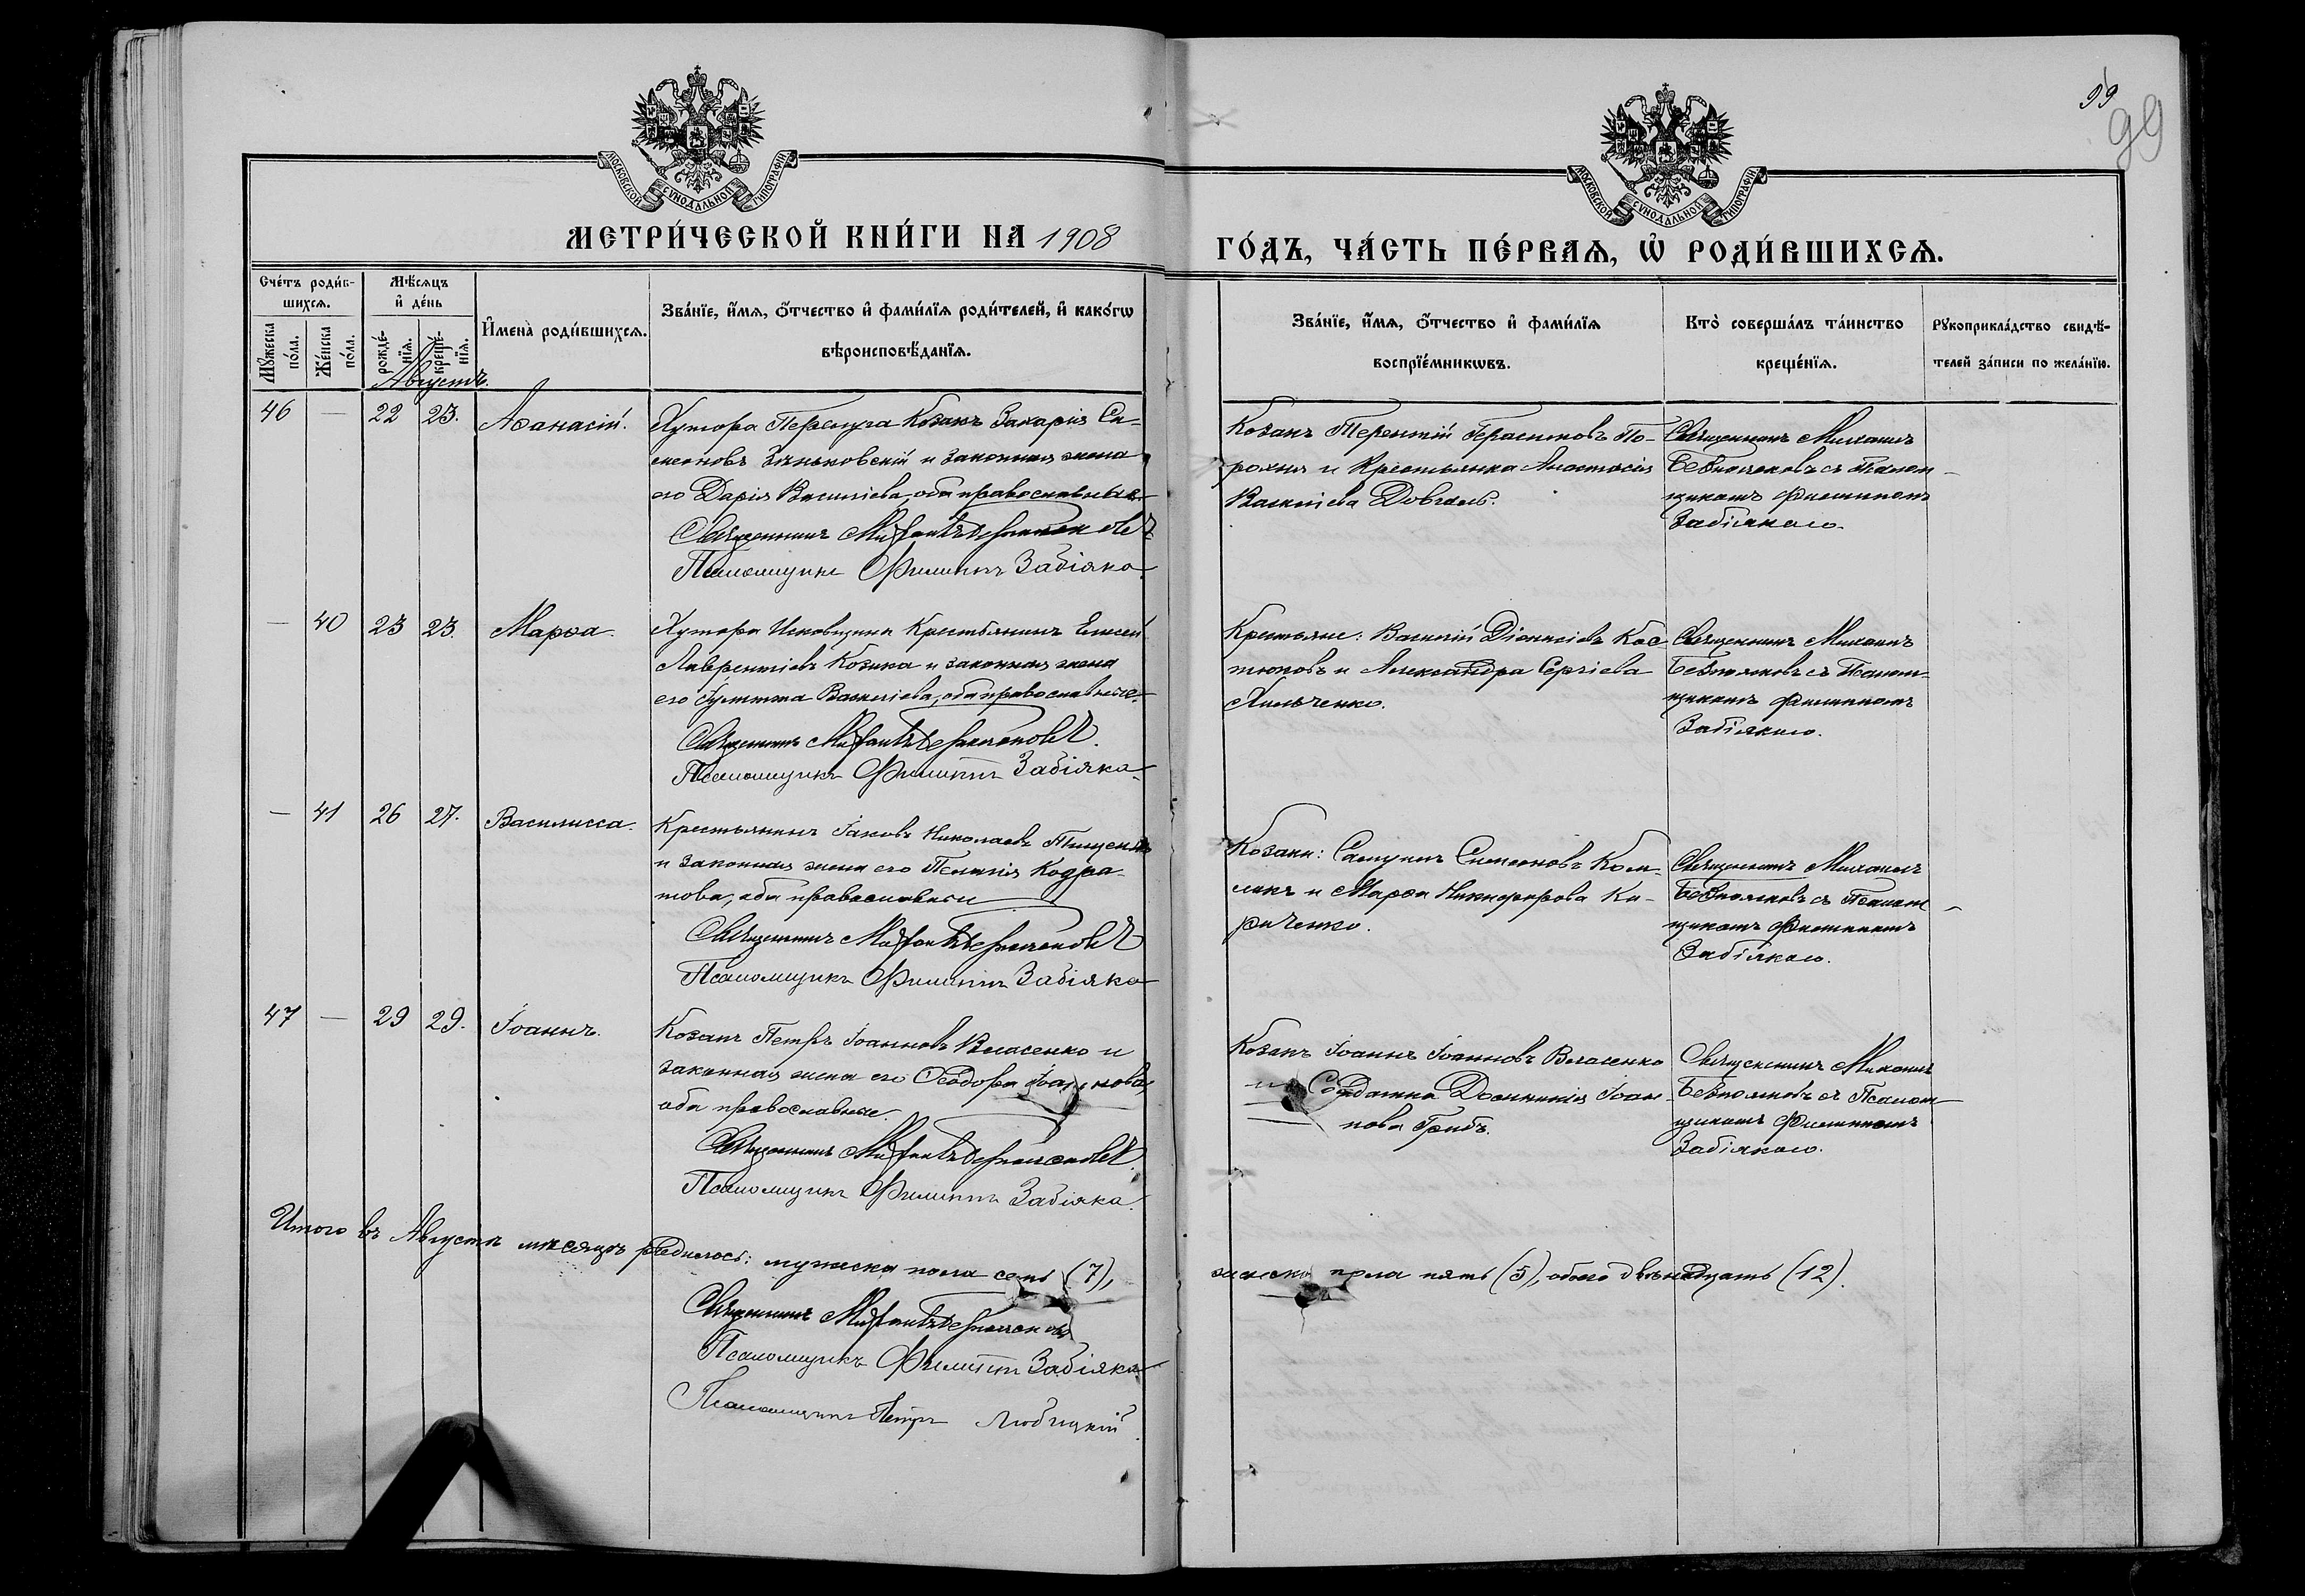 99
99
МОСКОВСКОЙ СѴНОДАЛЬНОЙ ТИПОГРАФІИ
МОСКОВСКОЙ СѴНОДАЛЬНОЙ ТИПОГРАФІИ
МЕТРИ́ЧЕСКОЙ КНИ́ГИ НА 1908
ГО́ДЪ, ЧА́СТЬ ПЕ́РВАЯ, Ѡ РОДИ́ВШИХСѦ.
Сче́тъ роди́в-
шихсѧ.
Мꙋ́жеска по́ла.
Же́нска по́ла.
Мѣ́сѧцъ
и де́нь
рожде́-нїѧ.
креще́-нїѧ.
Августъ.
И҆мена̀ роди́вшихсѧ.
Зва́нїе, и҆́мѧ, ѻ҆́тчество и҆ фами́лїѧ роди́телей, и҆ како́гѡ
вѣроисповѣ́данїѧ.
Зва́нїе, и҆́мѧ, ѻ҆́тчество и҆ фами́лїѧ
воспрїе́мникѡвъ.
Кто̀ соверша́лъ та́инство
креще́нїѧ.
Рꙋкоприкла́дство свидѣ́-
телей за́писи по жела́нїю.
46 — 22 23. Аѳанасій.
Хутора Козакъ Захарія Си-
меоновъ Зѣньковскій и законная жена
его Дарія Василіева, оба православные
Священникъ
Псаломщикъ Филиппъ Забіяка
Козакъ Терентій Герасимовъ По-
рохня и Крестьянка Анастасія
Василіева Довгаль.
Священникъ Михаилъ
съ Псалом-
щикомъ Филиппомъ
Забіякою.
— 40 23 23. Марѳа.
Хутора Крестьянинъ Елисей
Лаврентіевъ Козика и законная жена
его Іулитта Василіева, оба православные.
Священникъ
Псаломщикъ Филиппъ Забіяка
Крестьяне: Василій Діонисіевъ Кос-
тюковъ и Александра Сергіева
Ильченко.
Священникъ Михаилъ
съ Псалом-
щикомъ Филиппомъ
Забіякою.
— 41 26 27. Василисса.
Крестьянинъ Іаковъ Николаевъ
и законная жена его Пелагія Кодра-
това, оба православные
Священникъ
Псаломщикъ Филиппъ Забіяка
Козаки: Самуилъ Симеоновъ Ком-
лик и Марѳа Никифорова Ки-
риченко.
Священникъ Михаилъ
съ Псалом-
щикомъ Филиппомъ
Забіякою.
47 — 29 29. Іоаннъ.
Козакъ Петръ Іоанновъ Власенко и
законная жена его Ѳеодора Іоаннова,
оба православные.
Священникъ
Псаломщикъ Филиппъ Забіяка.
Козакъ Іоаннъ Іоанновъ Власенко
и Солдатка Домникія Іоан-
нова Грибъ.
Священникъ Михаилъ
съ Псалом-
щикомъ Филиппомъ
Забіякою.
Итого въ Августѣ мѣсяцѣ родилось: мужеска пола семь (7),
женска пола пять (5), обоего двѣнадцать (12).
Священникъ
Псаломщикъ Филиппъ Забіяка
Псаломщикъ Петръ Любицкій